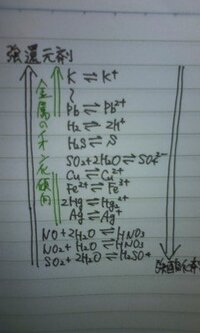 強還元剤
金属のイオン化傾向
K ⇌ K⁺
~
Pb ⇌ Pb²⁺
H₂ ⇌ 2H⁺
H₂S ⇌ S
SO₂+2H₂O ⇌ SO₄²⁻
Cu ⇌ Cu²⁺
Fe²⁺ ⇌ Fe³⁺
2Hg ⇌ Hg₂²⁺
Ag ⇌ Ag⁺
NO+2H₂O ⇌ HNO₃
NO₂+H₂O ⇌ HNO₃
SO₂+2H₂O ⇌ H₂SO₄
強酸化剤